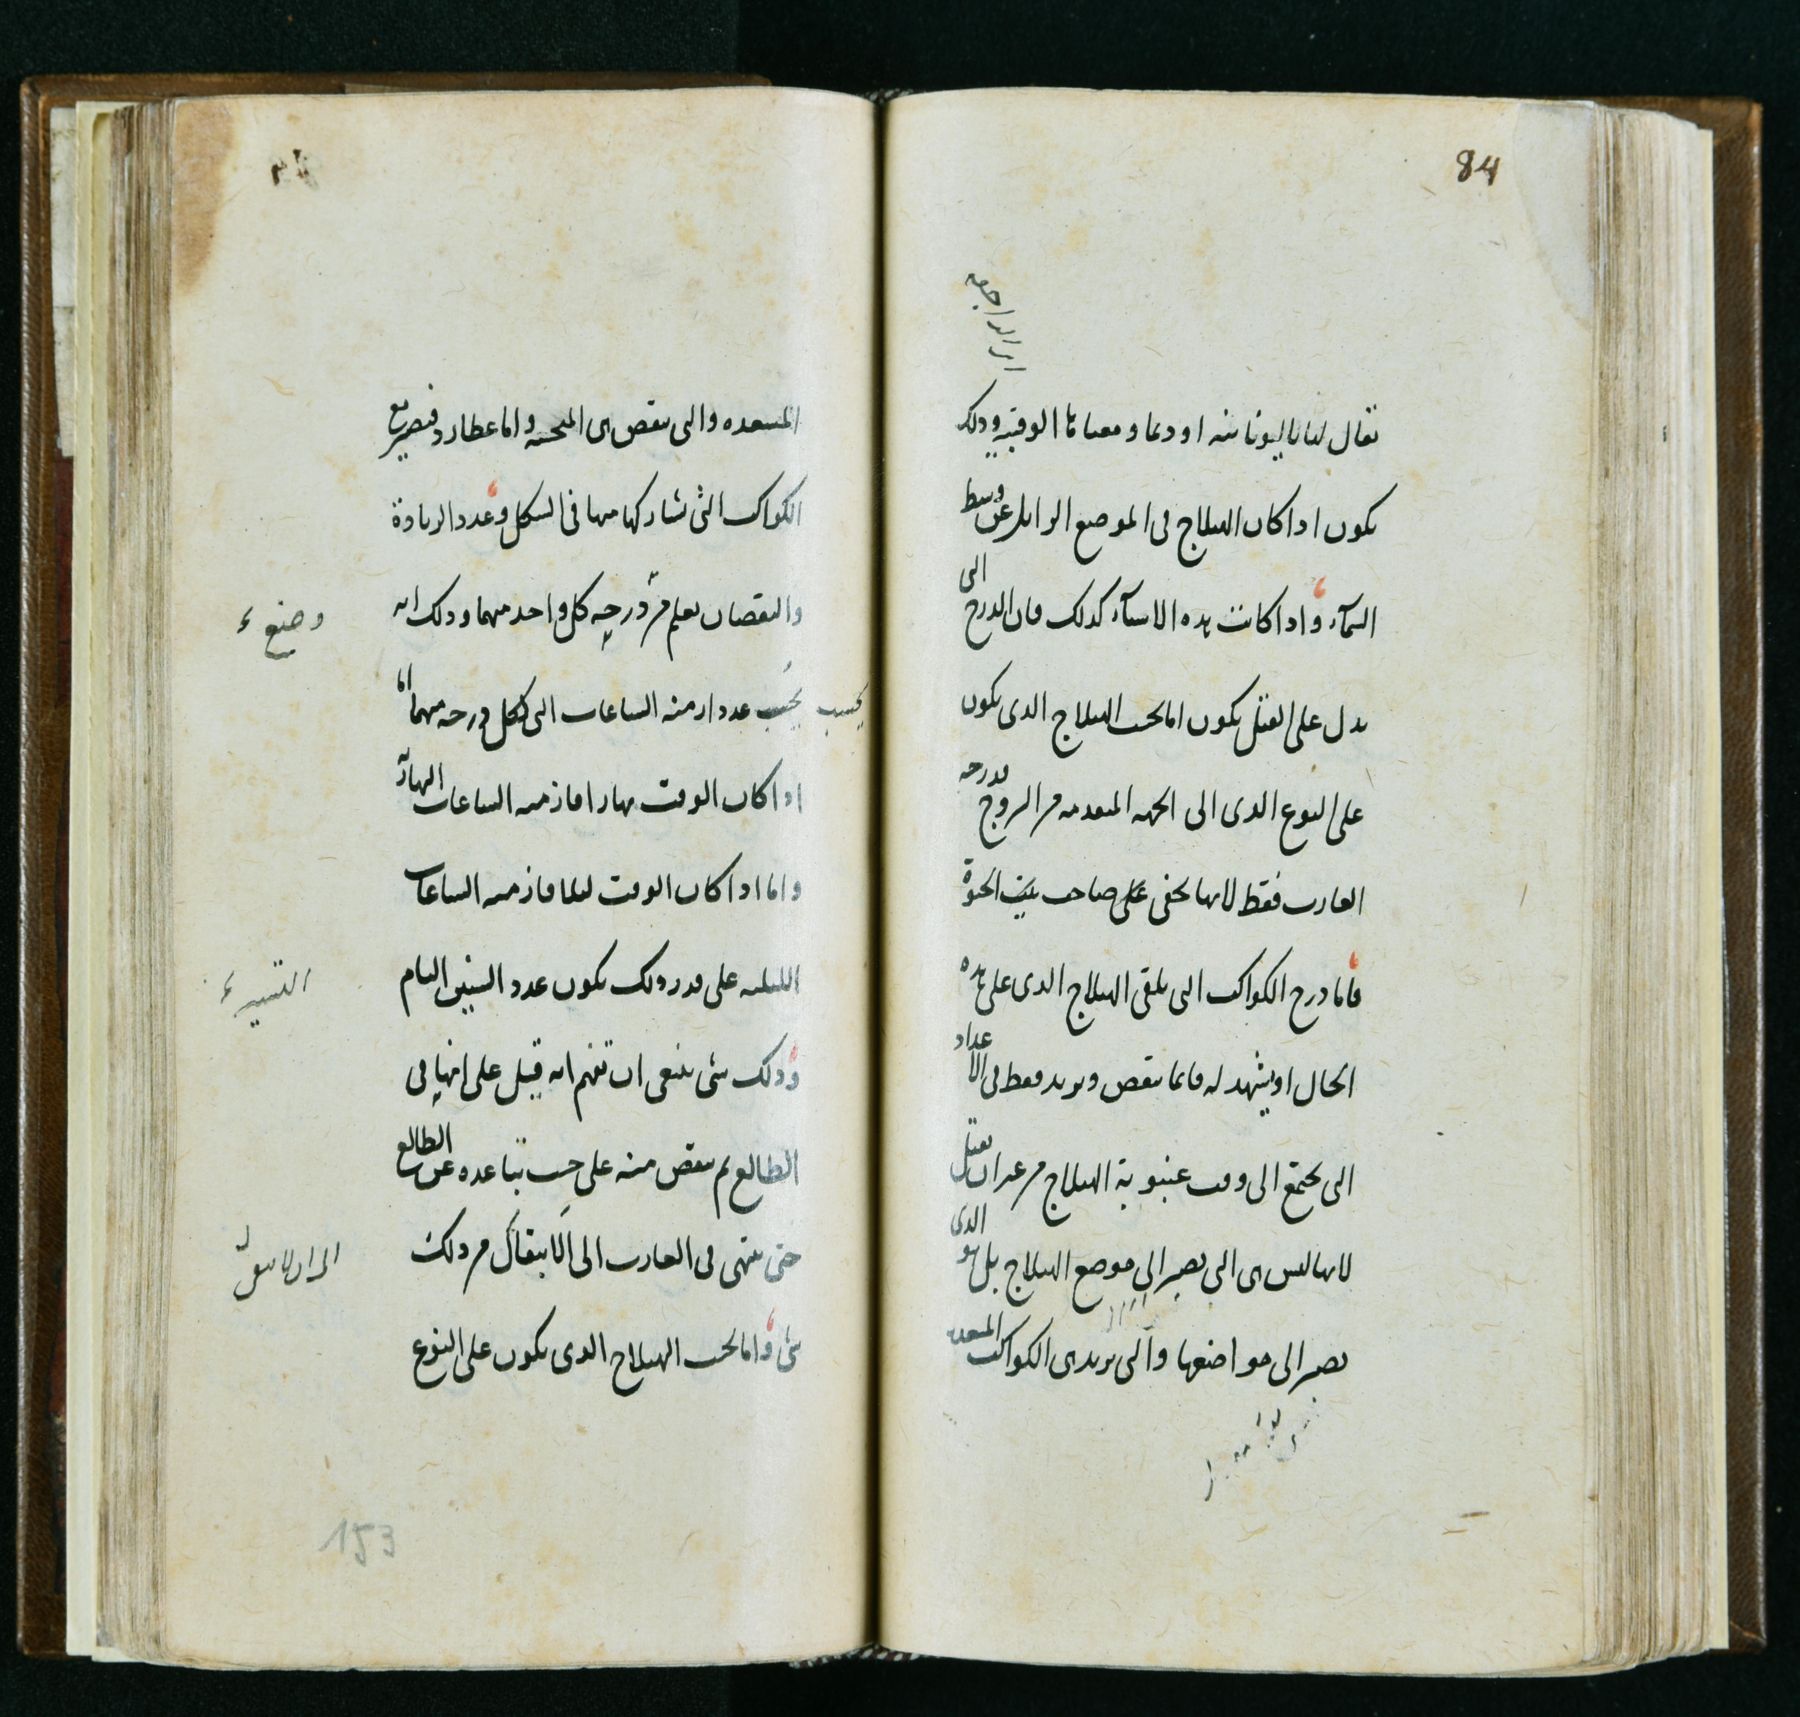 84
يقال لها باليونانية اوديما ومعناها الوقتية وذلك
يكون اذا كان الهيلاج في الموضع الزايل عن وسط
السمآء واذا كانت هذه الاشيآء كذلك فان الدرج التي
تدل على القتل يكون اما بحسب الهيلاج الذي يكون
على النوع الذي الى الجهة المتقدمة من البروج فدرجة
الغارب فقط لانها تخفى على صاحب بيت الحيوة
فاما درج الكواكب التي تلقى الهيلاج الذي على هذه
الحال او يشهد له فانما تنقص وتزيد فقط في الاعداد
التي تجتمع الى وقت غيبوبة الهيلاج من غير ان تقتل
لانها ليس هي التي تصير الى موضع الهيلاج بل هو الذي
يصير الى مواضعها والتي تزيد هي الكواكب المسعدة
المسعدة والتي تنقص هي المنحسة واما عطارد فيصير مع
الكواكب التي تشاركها منها في الشكل وعدد الزيادة
والنقصان يعلم من درجة كل واحد منهما وذلك انه
يحسب
بحسب عدد ازمنة الساعات التي لكل درجة منهما اما
اذا كان الوقت نهارا فازمنة الساعات النهارية
واما اذا كان الوقت ليلا فازمنة الساعات
الليلية على قدر ذلك يكون عدد السنين التام
وذلك شئ ينبغي ان تفهم انه قيل على انها في
الطالع ثم ينقص منه على حسب تباعده عن الطالع
حتى ينتهي في الغارب الى الا يبقى لك من ذلك
شئ واما بحسب الهيلاج الذي يكون على النوع
وضع
التسيير
153